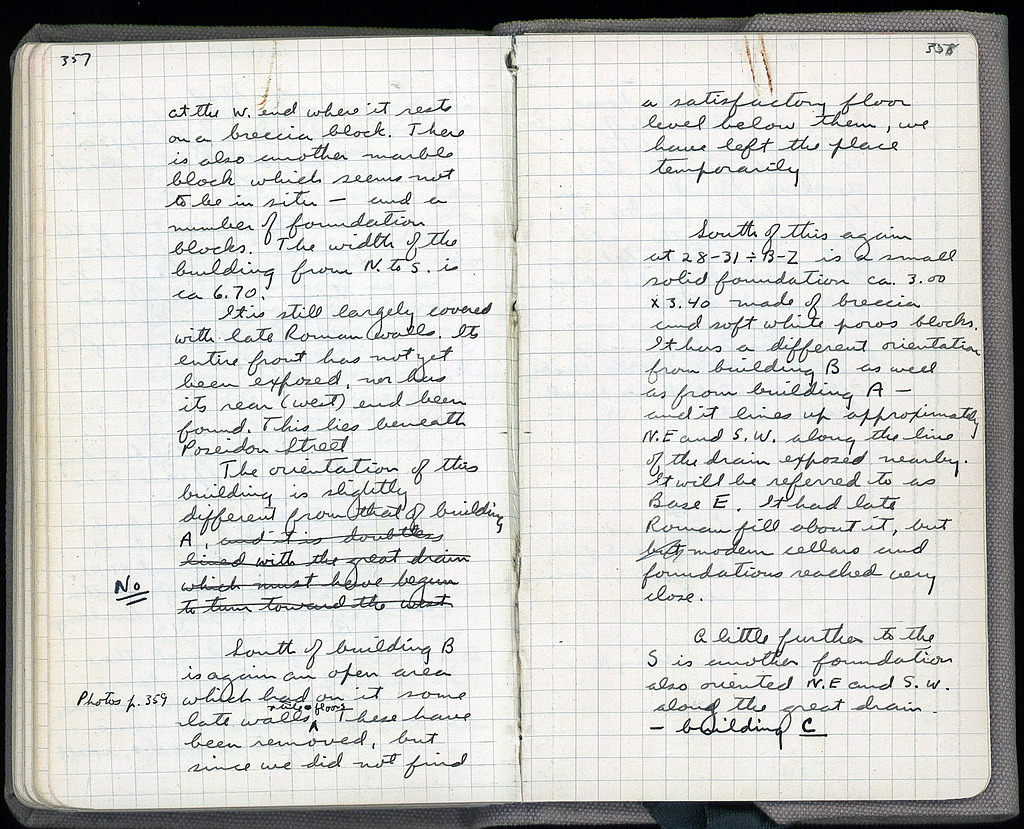 357
at the W. end where it rests
on a breccia block. There
is also another marble
block which seems not
to be in situ — and a
number of foundation
blocks. The width of the
building from N. to S. is
ca 6.70.
It is still largely covered
with late Roman walls. Its
entire front has not yet
been exposed, nor has
its rear (west) end been
found. This lies beneath
Poseidon Street
The orientation of this
building is slightly
different from that of building
A, and it is doubtless
lined with the great drain
No which must have begun
to turn toward the west
South of building B
is again an open area
Photos p. 359 which had on it some
late walls floors These have
been removed, but
since we did not find
358
a satisfactory floor
level below them, we
have left the place
temporarily
South of this again
at 28-31 ÷ B-Z is a small
solid foundation ca. 3.00
x 3.40 made of breccia
and soft white poros blocks.
It has a different orientation
from building B as well
as from building A —
and it lines up approximately
N.E and S.W. along the line
of the drain exposed nearby.
It will be referred to as
Base E. It had late
Roman fill about it, but
modern cellars and
foundations reached very
close.
A little further to the
S is another foundation
also oriented N.E and S.W.
along the great drain.
— building C